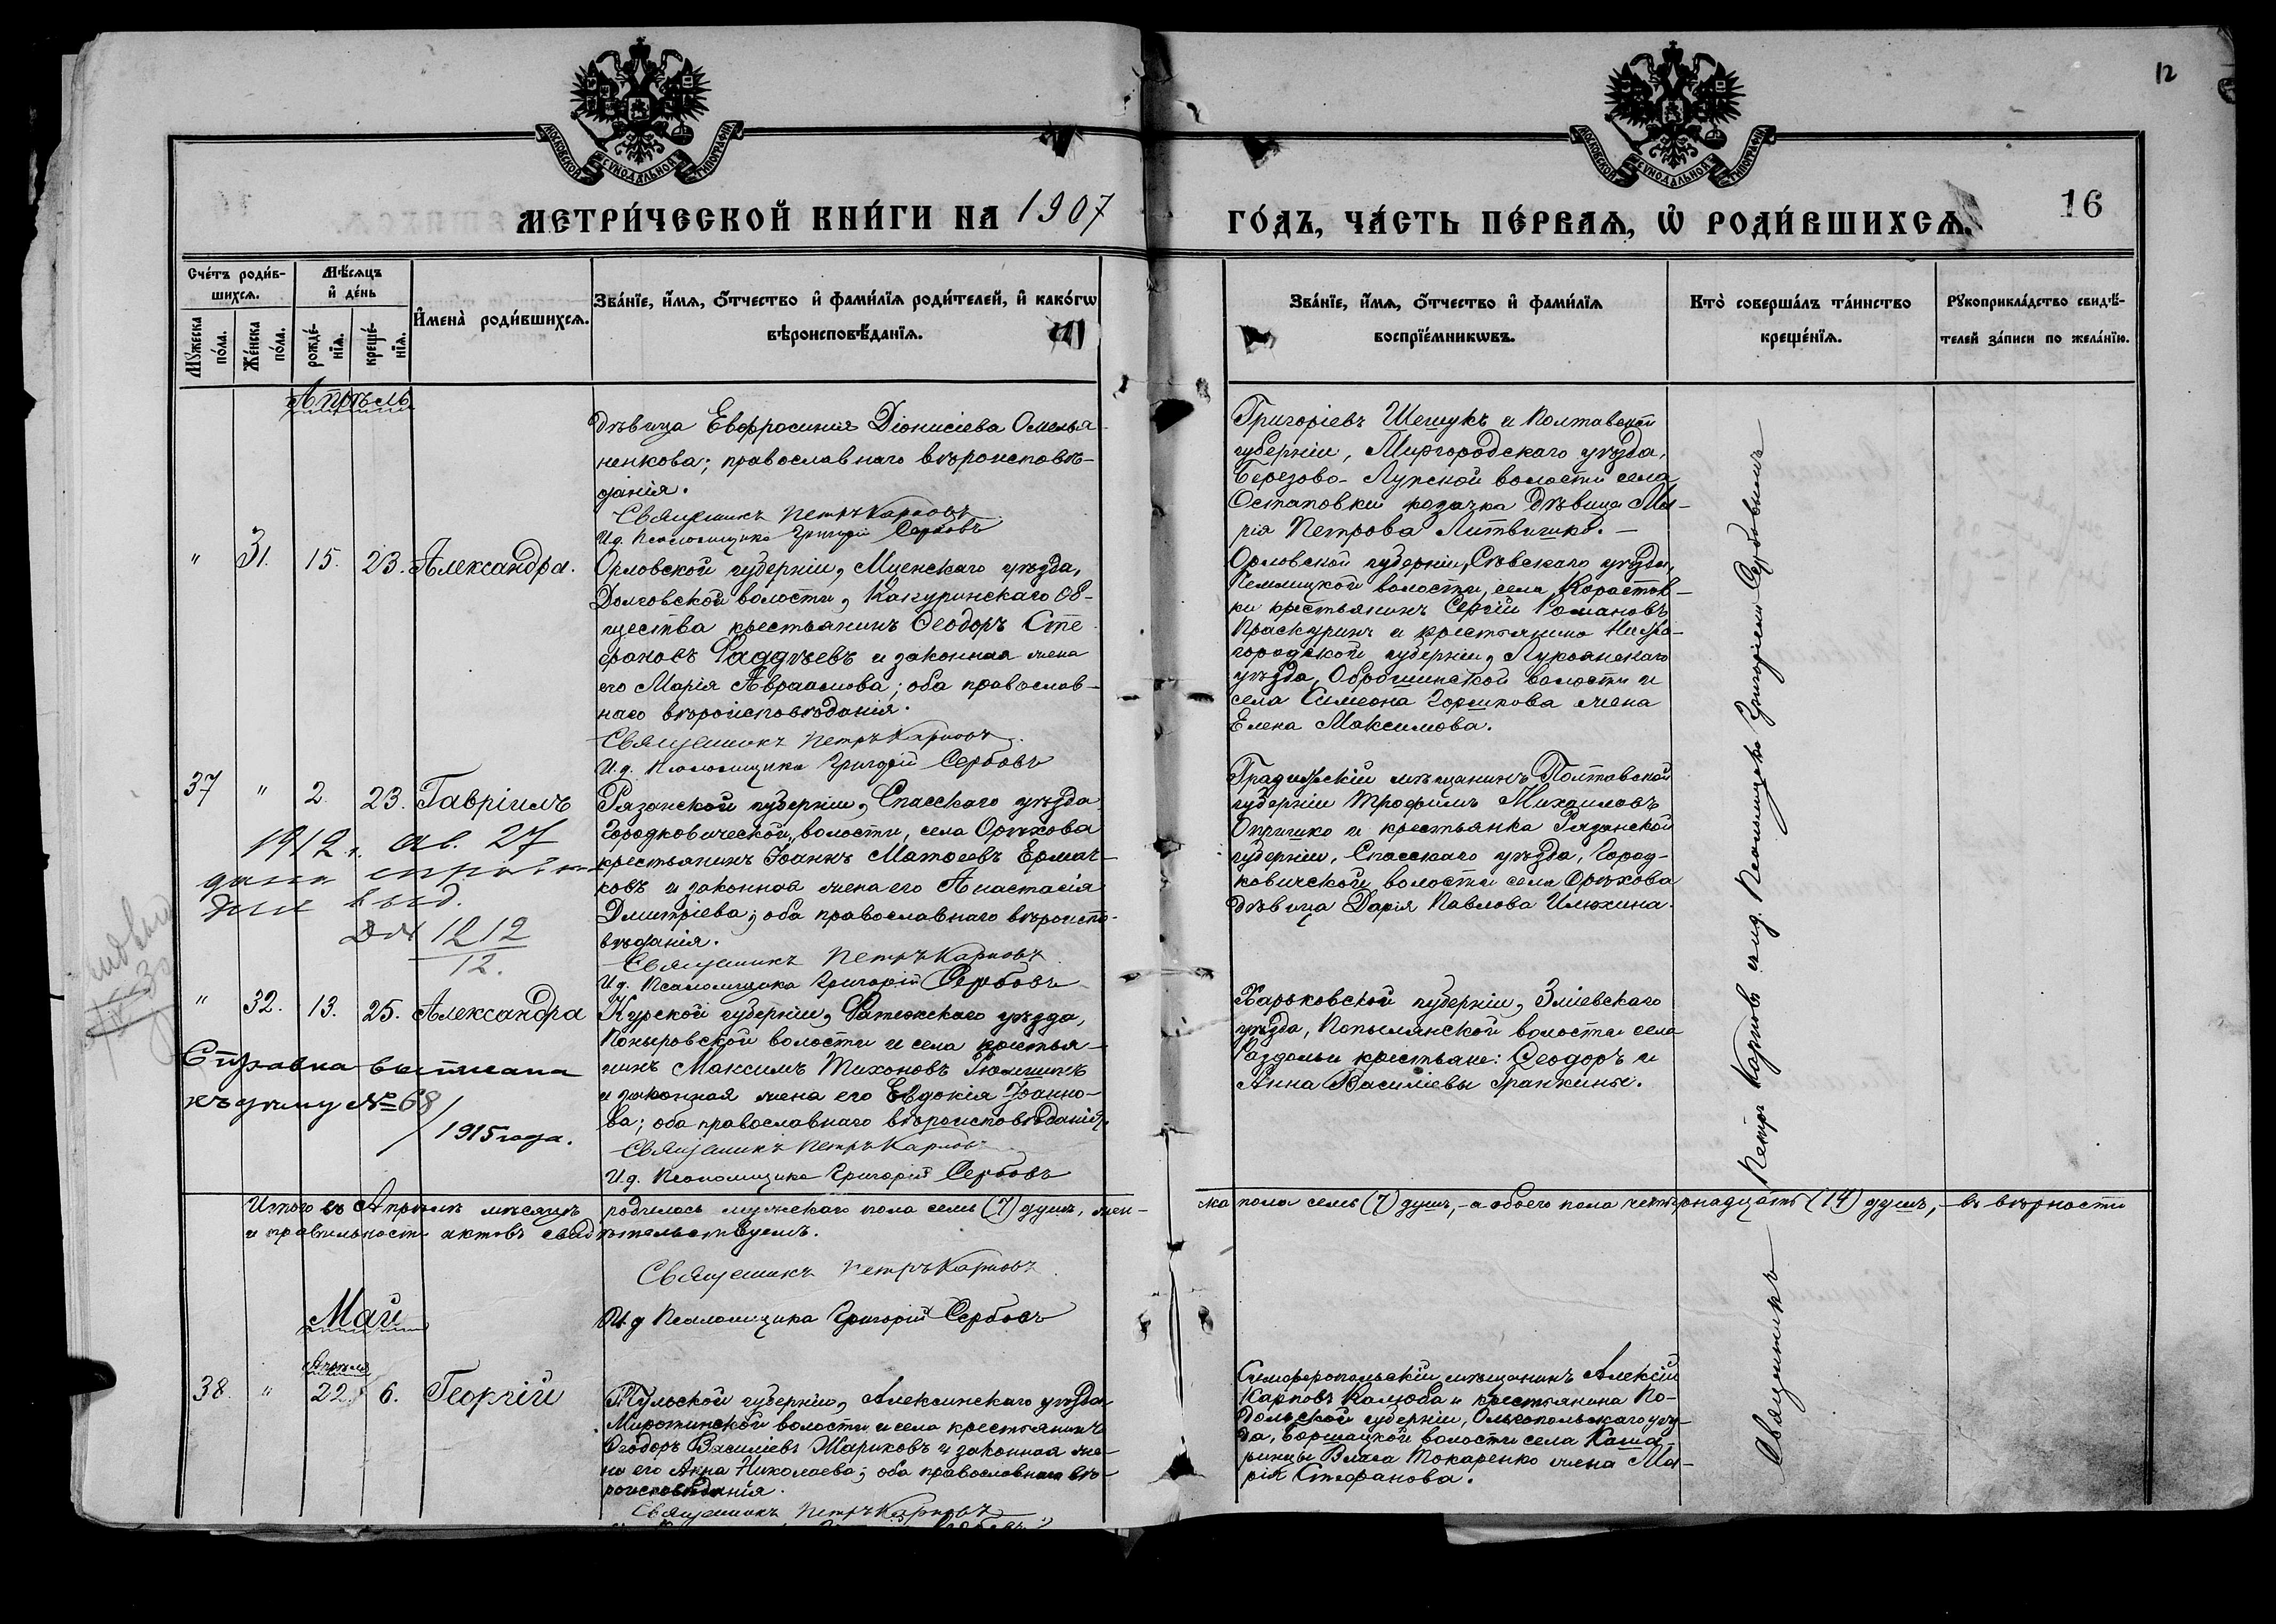 12
МОСКОВСКОЙ СУНОДАЛЬНОЙ ТИПОГРАФІИ
МОСКОВСКОЙ СУНОДАЛЬНОЙ ТИПОГРАФІИ
МЕТРИ́ЧЕСКОЙ КНИ́ГИ НА 1907
ГО́ДЪ, ЧА́СТЬ ПЕ́РВАѦ, Ѡ҆ РОДИ́ВШИХСѦ.
16
Сче́тъ роди́в-
шихсѧ.
Мꙋ́жеска
по́ла.
Же́нска
по́ла.
Мѣ́сѧцъ
и҆ де́нь
рожде́-
нїѧ.
креще́-
нїѧ.
И҆мена̀ роди́вшихсѧ.
Зва́нїе, и҆́мѧ, ѻ҆́тчество и҆ фами́лїѧ роди́телей, и҆ како́гѡ
вѣроисповѣ́данїѧ.
Зва́нїе, и҆́мѧ, ѻ҆́тчество и҆ фами́лїѧ
воспрїе́мникѡвъ.
Кто̀ соверша́лъ та́инство
креще́нїѧ.
Рꙋкоприкла́дство свидѣ́-
телей за́писи по жела́нїю.
Апрѣль
дѣвица Евфросинія Діонисіева Омелья-
ненкова; православнаго вѣроисповѣ-
данія.
Священникъ Петръ Карповъ
И.д. Псаломщика Григорій Сербовъ
Григоріевъ Шешукъ и Полтавской
губерніи, Миргородскаго уѣзда,
Березово-Лукской волости села
Остаповки козачка дѣвица Ма-
рія Петрова Литвишко.
" 31. 15. 23. Александра.
Орловской губерніи, Мценскаго уѣзда,
Долговской волости, Какуринскаго об-
щества крестьянинъ Ѳеодоръ Сте-
фановъ Фаддѣевъ и законная жена
его Марія Авраамова; оба православ-
наго вѣроисповѣданія.
Священникъ Петръ Карповъ
И.д. Псаломщика Григорій Сербовъ
Орловской губерніи, Сѣвскаго уѣзда,
волости, села
ки крестьянинъ Сергій Романовъ
Праскуринъ и крестьянина Ниже-
городской губерніи, Лукоянскаго
уѣзда, Оброшинской волости и
села Симеона Горшкова жена
Елена Максимова.
37 " 2. 23. Гавріилъ
Рязанской губерніи, Спасскаго уѣзда
Городковической волости, села Орѣхова
крестьянинъ Іоаннъ Матѳеевъ Ермач-
ковъ и законная жена его Анастасія
Димитріева; оба православнаго вѣроиспо-
вѣданія.
Священникъ Петръ Карповъ
И.д. Псаломщика Григорій Сербовъ
Градижскій мѣщанинъ Полтавской
губерніи Трофимъ Михаиловъ
Опришко и крестьянка Рязанской
губерніи, Спасскаго уѣзда, Город-
ковической волости села Орѣхова
дѣвица Дарія Павлова Илюхина.
1912 г. Ав. 27
выд.
1212
12.
" 32. 13. 25. Александра
Курской губерніи, Фатежскаго уѣзда,
Поныровской волости и села крестья-
нинъ Максимъ Тихоновъ
и законная жена его Евдокія Іоанно-
ва; оба православнаго вѣроисповѣданія.
Священникъ Петръ Карповъ
И.д. Псаломщика Григорій Сербовъ
Харьковской губерніи, Зміевскаго
уѣзда, волости села
Раздолья крестьяне: Ѳеодоръ и
Анна Василіевы Гранкины.
Справка выписана
къ дѣлу № 68
/ 1915 года.
Итого въ Апрѣлѣ мѣсяцѣ родилось мужескаго пола семь (7) душъ, жен-
ска пола семь (7) душъ, а обоего пола четырнадцать (14) душъ, въ вѣрности
и правильности актовъ свидѣтельствуемъ.
Священникъ Петръ Карповъ
И.д. Псаломщика Григорій Сербовъ
Май
38. " Апрѣля 22. 6. Георгій
Тульской губерніи, Алексинскаго уѣзда
Миротинской волости и села крестьянинъ
Ѳеодоръ Василіевъ Шариковъ и законная же-
на его Анна Николаева; оба православнаго вѣ-
роисповѣданія.
Священникъ Петръ Карповъ
Симферопольскій мѣщанинъ Алексій
Карповъ Калюба и крестьянина По-
дольской губерніи, Ольгопольскаго уѣз-
да, волости села
Власа Токаренко жена Ма-
рія Стефанова.
Священникъ Петръ Карповъ и и.д. Псаломщика Григоріемъ Сербовымъ